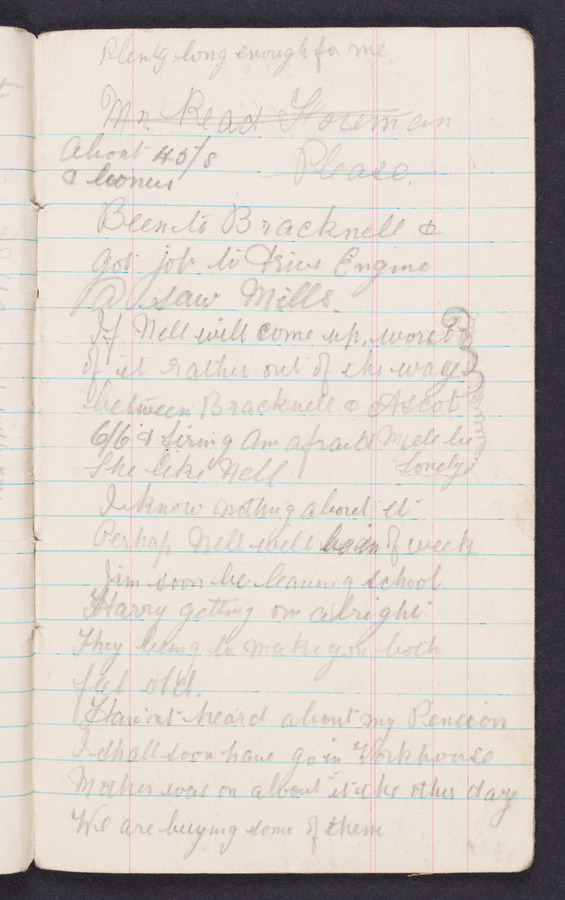 Plenty long enough for me
Mr Read Foreman
About 45/8
Please
Been to Bracknell &
got job to Drive Engine
@ saw Mills
If Nell will come up, worst
of it rather out of the way
between Bracknell & Ascot
6/6 & firing Am afraid
lonely
She like Nell
I know nothing about it
Perhaps Nell will of week
Jim soon be leaving school
Harry getting on alright
They to make you both
feel old.
Havint heard about my Pension
I shall soon have go in Workhouse
Mother was on about it the other day
We are buying some of them